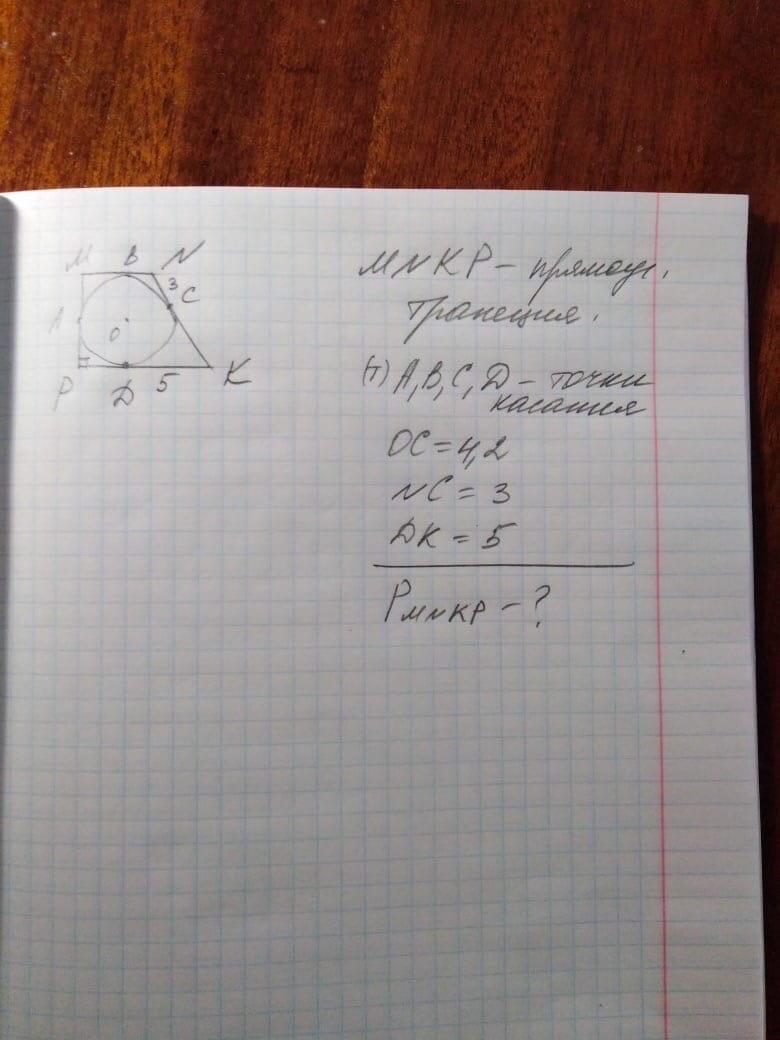 M B N
3
C
A
O
P
D
5
K
MNKP - прямоуг.
трапеция.
(т) A, B, C, D - точки
касания
OC = 4,2
NC = 3
DK = 5
P MNKP - ?